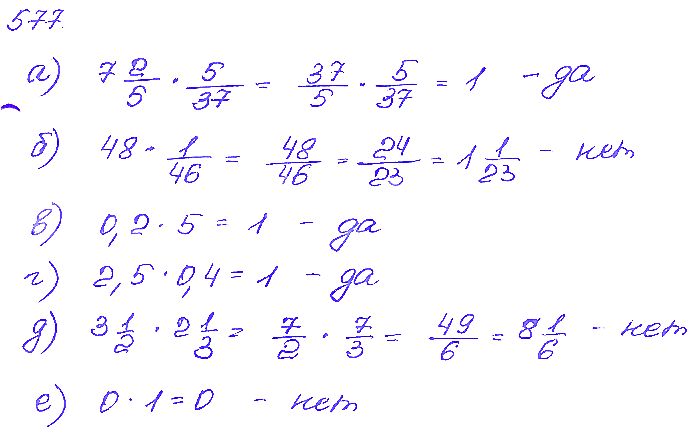 577.
а) 7 2/5 · 5/37 = 37/5 · 5/37 = 1 - да
б) 48 · 1/46 = 48/46 = 24/23 = 1 1/23 - нет
в) 0,2 · 5 = 1 - да
г) 2,5 · 0,4 = 1 - да
д) 3 1/2 · 2 1/3 = 7/2 · 7/3 = 49/6 = 8 1/6 - нет
е) 0 · 1 = 0 - нет